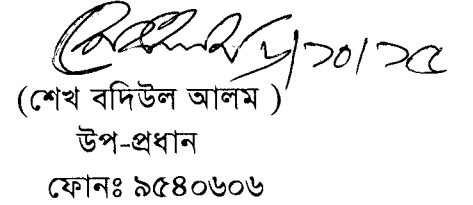 ৮/১০/১৫
(শেখ বদিউল আলম )
উপ-প্রধান
ফোনঃ ৯৫৪০৬০৬